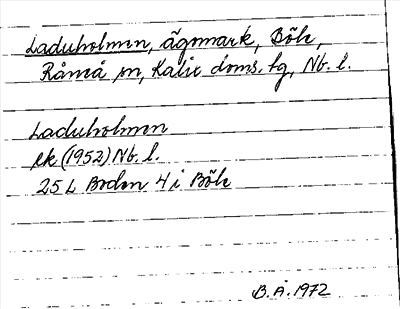 Laduholmen, ägomark, Böle,
Råneå sn, Kalix doms. hg, Nb. l.
Laduholmen
ek (1952) Nb. l.
25 L Boden 4 i Böle
B. Å. 1972